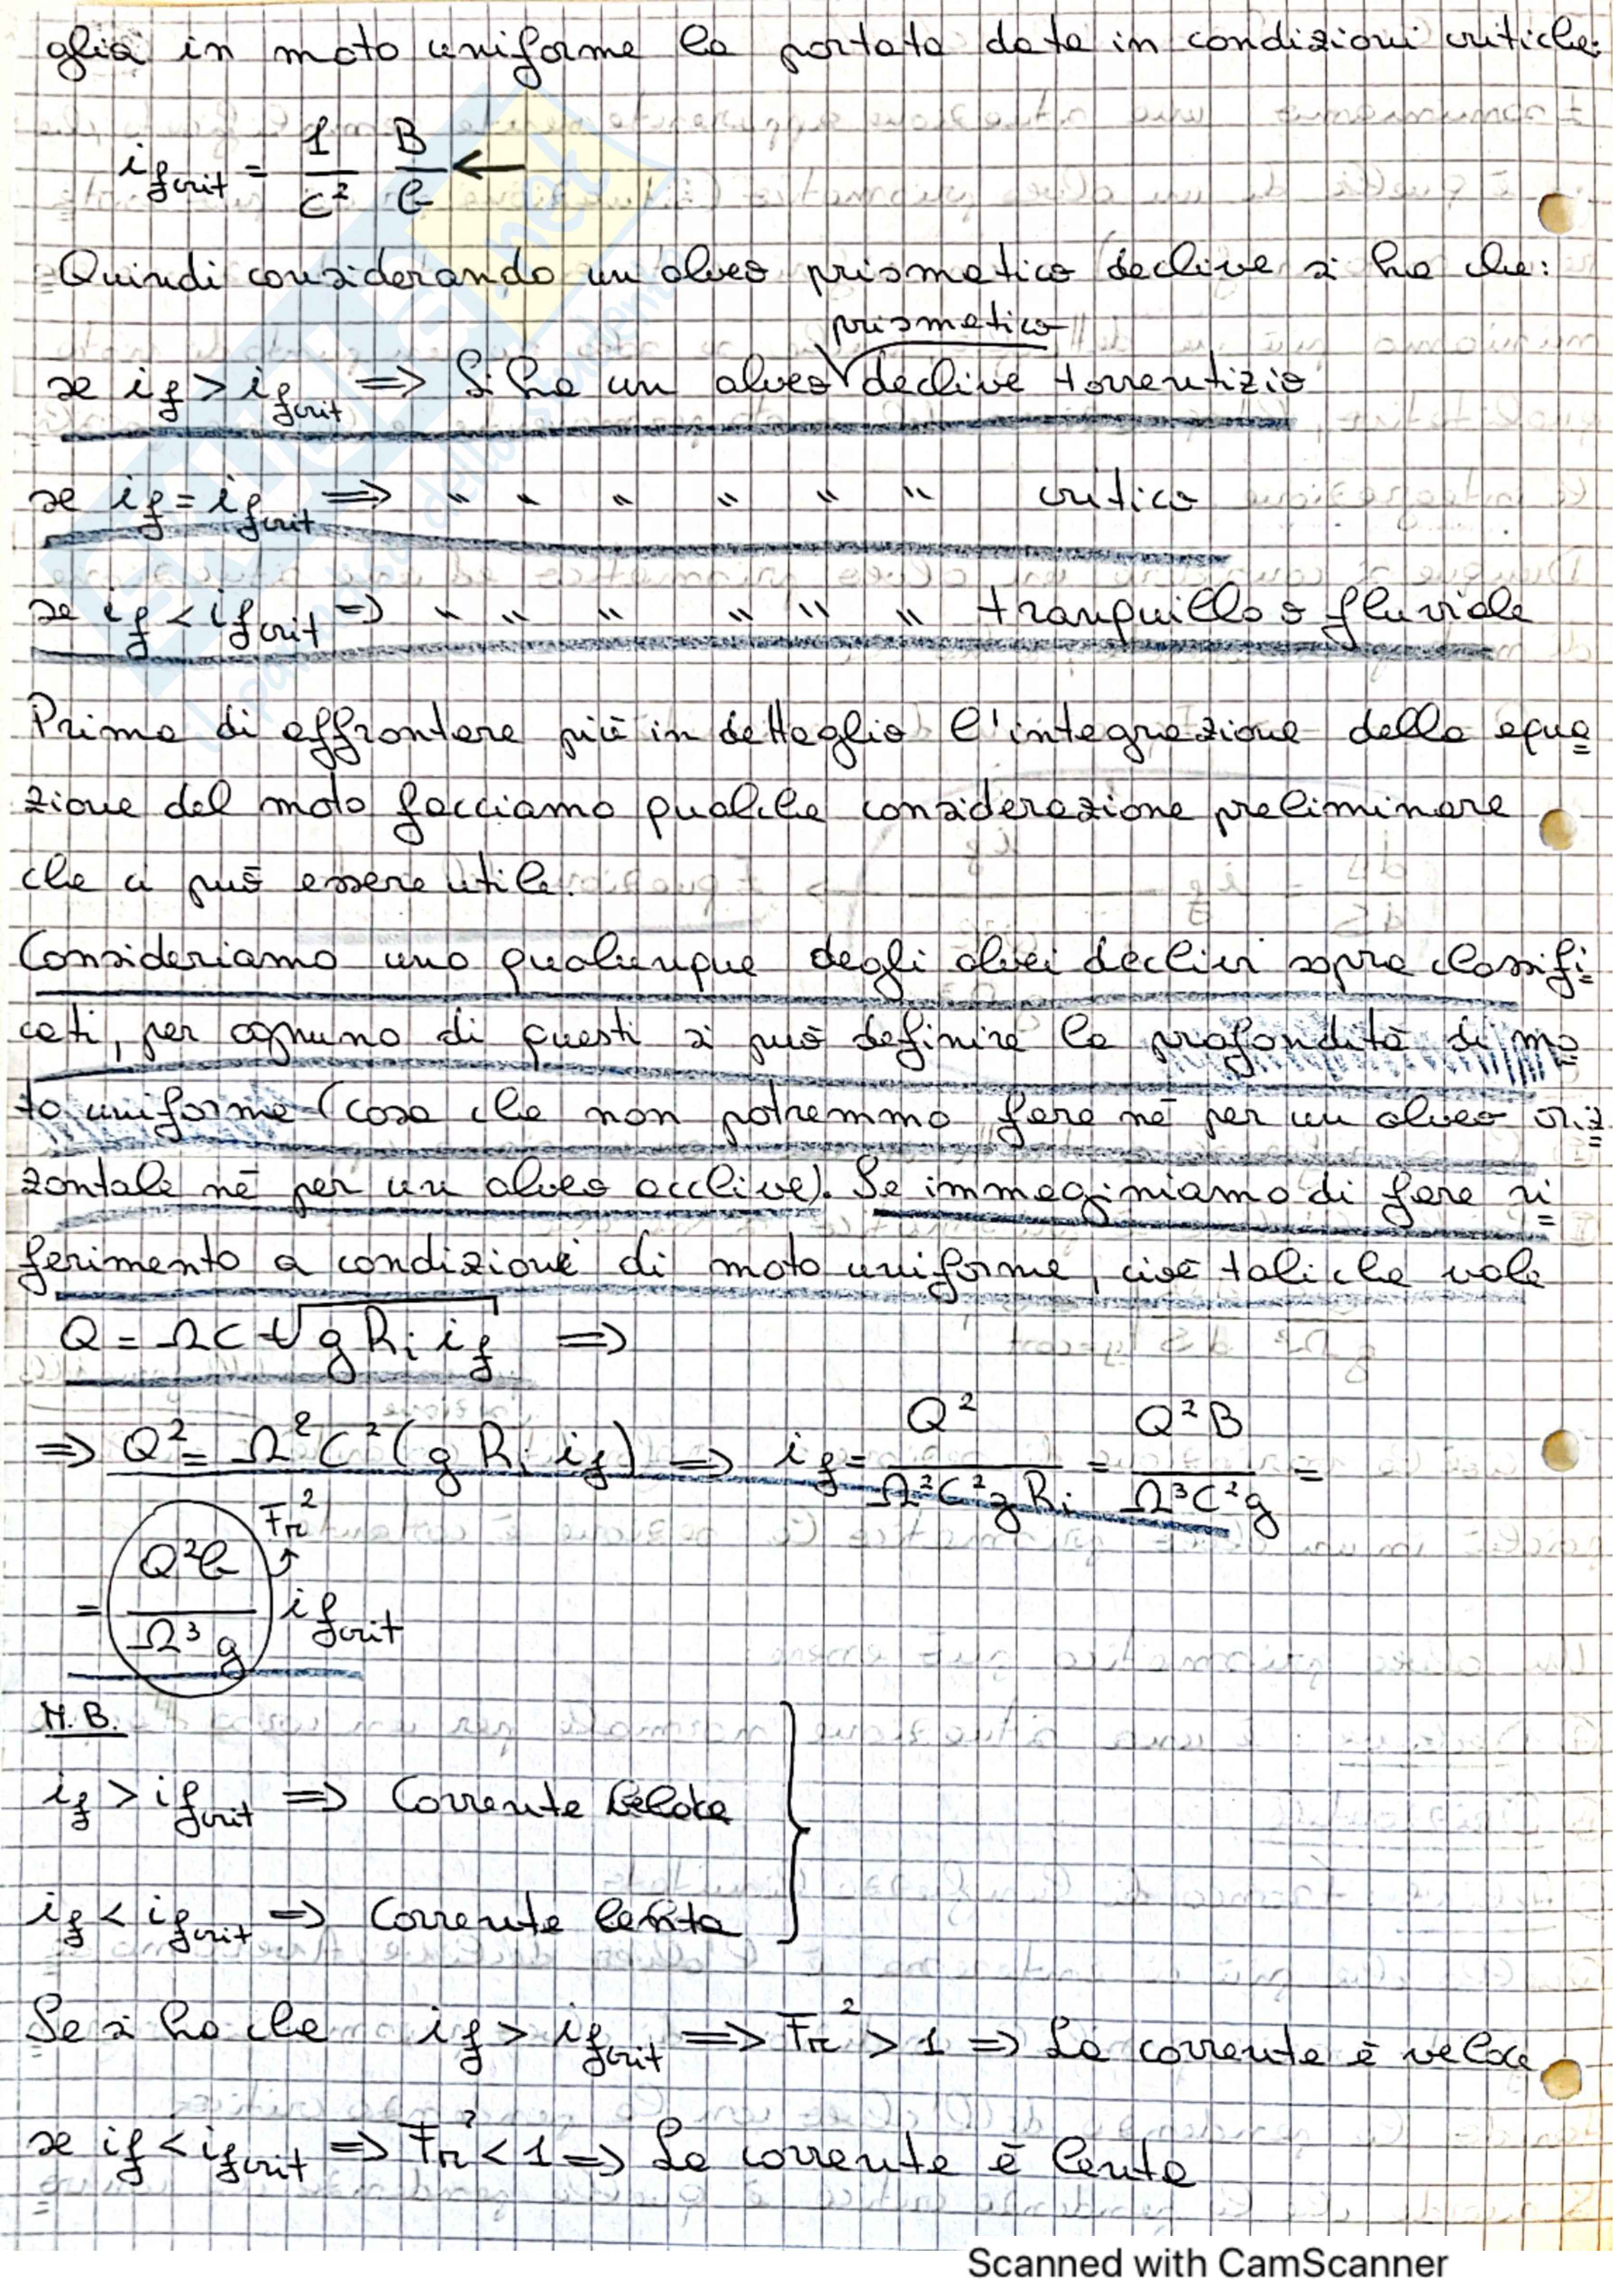 glia in moto uniforme la portata data in condizioni critiche:
i_fcrit = 1/C² B/b ←
Quindi considerando un alveo prismatico declive si ha che:
prismatico
se i_f > i_fcrit ⟹ Si ha un alveo declive torrentizio
se i_f = i_fcrit ⟹ " " " " " " critico
se i_f < i_fcrit ⟹ " " " " " " tranquillo o fluviale
Prima di affrontare più in dettaglio l'integrazione della equa
zione del moto facciamo qualche considerazione preliminare
che ci può essere utile.
Consideriamo uno qualunque degli alvei declivi sopra classifi
cati, per ognuno di questi si può definire la profondità di mo
to uniforme (cosa che non potremmo fare né per un alveo oriz
zontale né per un alveo acclive). Se immaginiamo di fare ri
ferimento a condizioni di moto uniforme, cioè tali che vale
Q = ΩC √(g R_i i_f) ⟹
⟹ Q² = Ω²C²(g R_i i_f) ⟹ i_f = Q²/(Ω²C²g R_i) = Q²B/(Ω³C²g) =
Fr²
= Q²b/(Ω³g) i_fcrit
N.B.
i_f > i_fcrit ⟹ Corrente veloce
i_f < i_fcrit ⟹ Corrente lenta
Se si ha che i_f > i_fcrit ⟹ Fr² > 1 ⟹ La corrente è veloce
se i_f < i_fcrit ⟹ Fr² < 1 ⟹ La corrente è lenta
Scanned with CamScanner